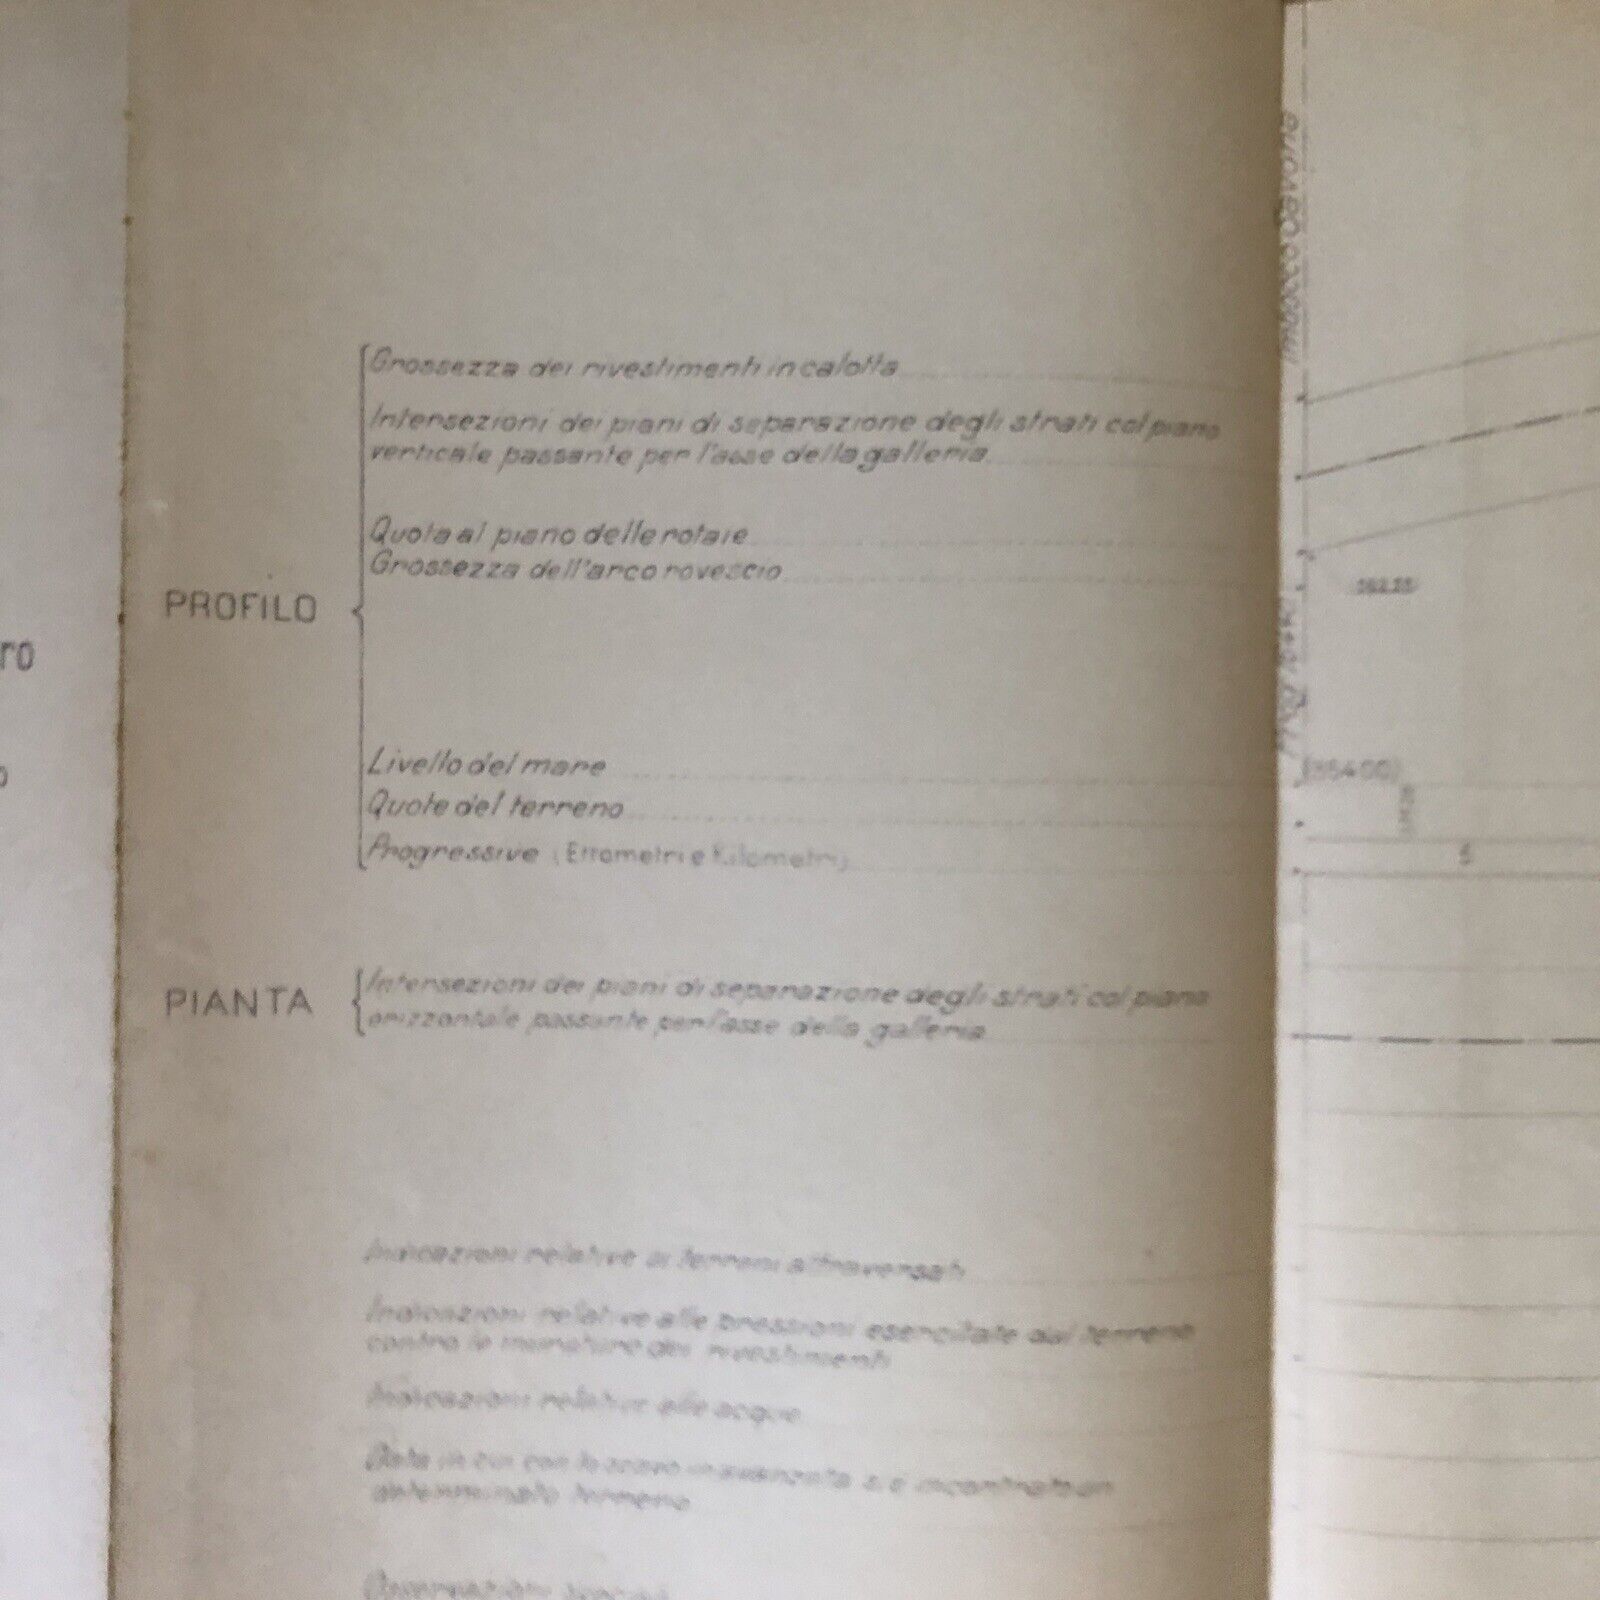 Grossezza dei rivestimenti in calotta
Intersezioni dei piani di separazione degli strati col piano
verticale passante per l'asse della galleria
Quota al piano delle rotaie
Grossezza dell'arco rovescio
PROFILO
ro
Livello del mare
Quote del terreno
Progressive (Ettometri e Kilometri)
5
PIANTA
Intersezioni dei piani di separazione degli strati col piano
orizzontale passante per l'asse della galleria
Indicazioni relative ai terreni attraversati
Indicazioni relative alle pressioni esercitate dal terreno
contro le murature dei rivestimenti
Indicazioni relative alle acque
Data in cui con lo scavo in avanzata si è incontrato un
determinato terreno
Imbocco